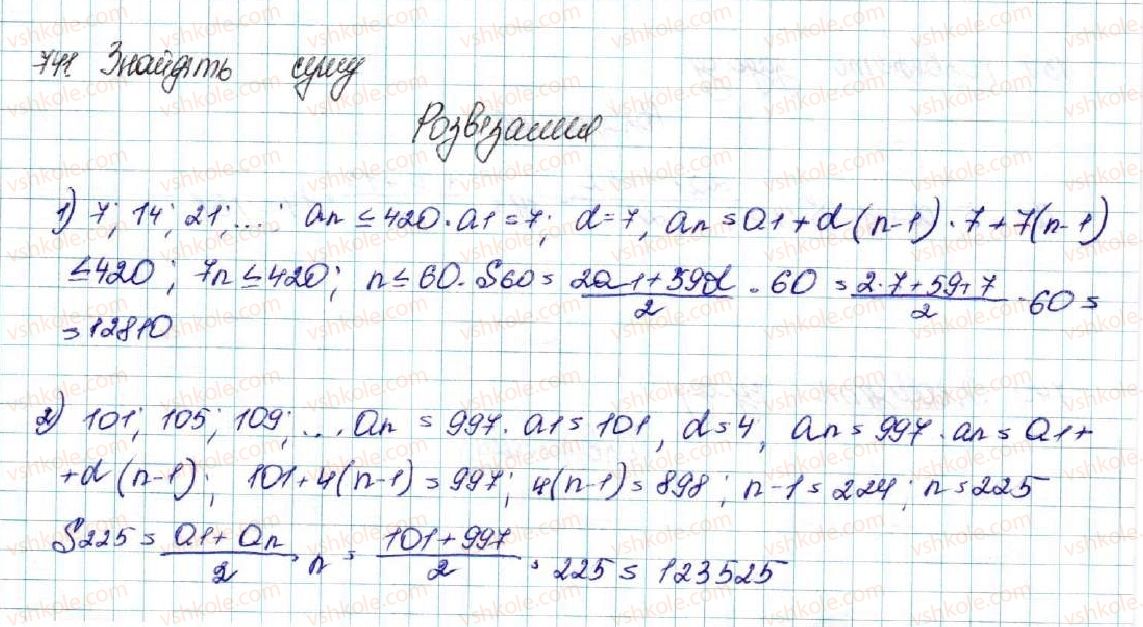 741. Знайдіть суму
Розв'язання
1) 7; 14; 21; ... an ≤ 420. a1 = 7; d = 7, an = a1 + d(n-1). 7 + 7(n-1)
≤ 420; 7n ≤ 420; n ≤ 60. S60 = (2a1 + 59d)/2 · 60 = (2·7 + 59+7)/2 · 60 =
= 12810
2) 101; 105; 109; ... an = 997. a1 = 101, d = 4, an = 997. an = a1 +
+ d(n-1); 101 + 4(n-1) = 997; 4(n-1) = 898; n-1 = 224; n = 225
S225 = (a1 + an)/2 · n = (101 + 997)/2 · 225 = 123525